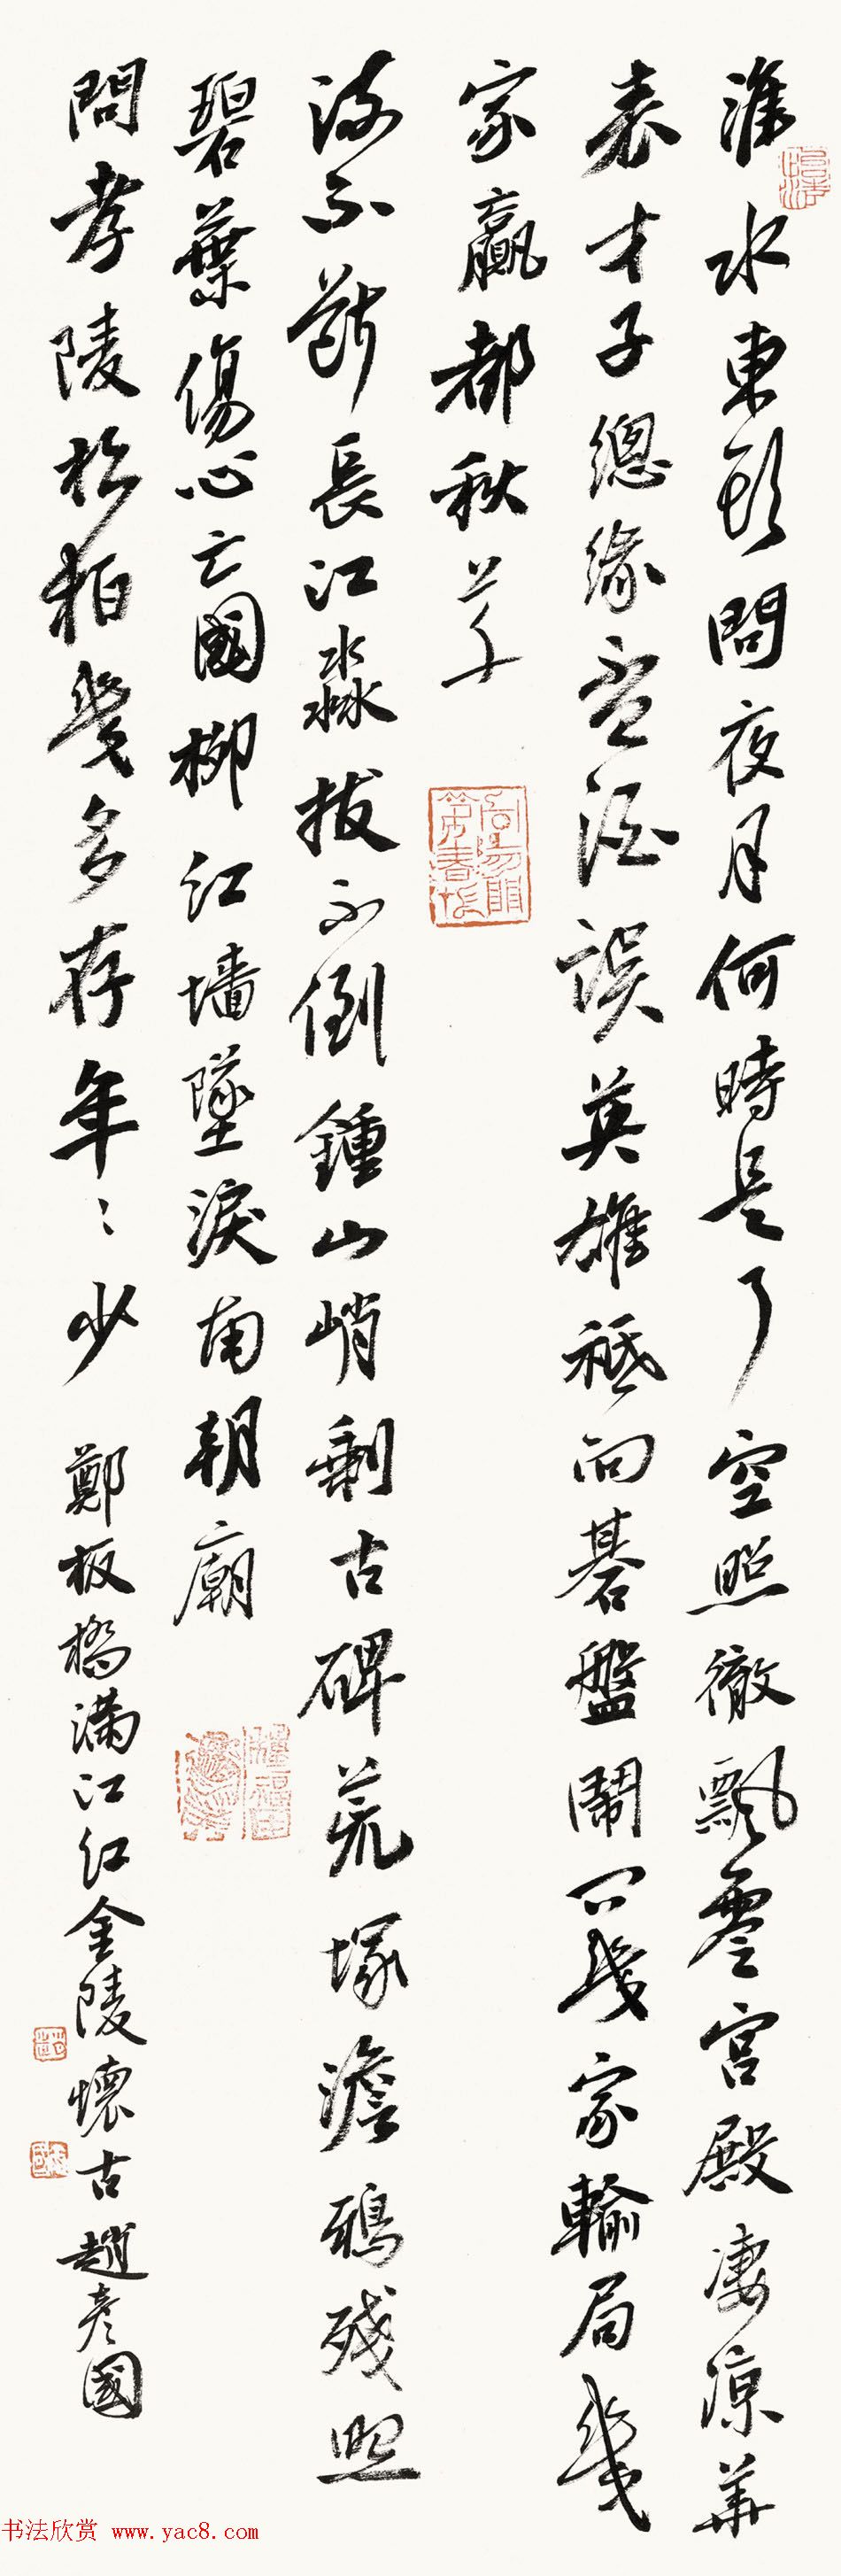 淮水東頭問夜月何時是了空照徹飄零宮殿凄凉華
表才子總緣盃酒誤英雄祗向碁盤鬧問幾家輸局幾
家贏都秋草
流不斷長江淼拔不倒鍾山峭剩古碑荒塚澹鴉殘照
碧葉傷心亡國柳紅墻墜淚南朝廟
問孝陵松柏幾多存年〻少 鄭板橋滿江紅金陵懷古趙彥國
书法欣赏 www.yac8.com